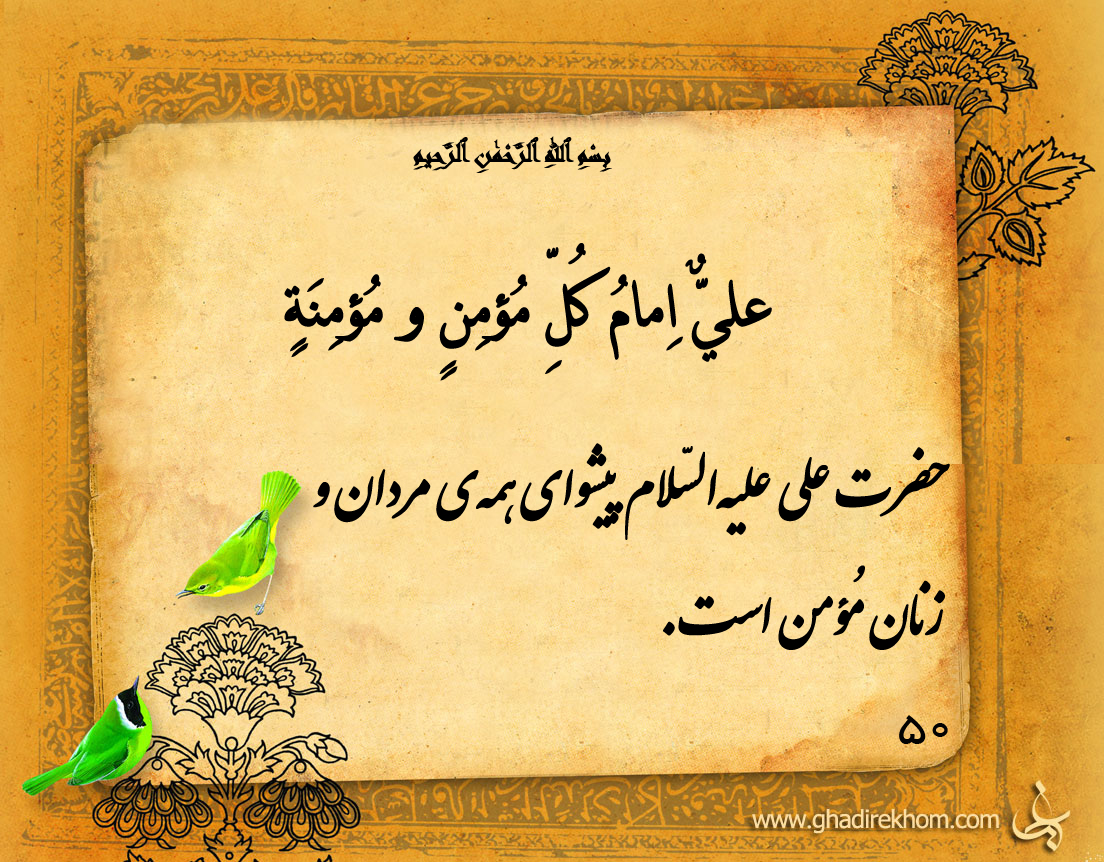 بِسْمِ ٱللَّهِ ٱلرَّحْمَٰنِ ٱلرَّحِيمِ
عليٌّ اِمامُ كُلِّ مُؤمِنٍ و مُؤمِنَةٍ
حضرت علی علیه السّلام پیشوای همه ی مردان و
زنان مُؤمن است.
۵۰
www.ghadirekhom.com